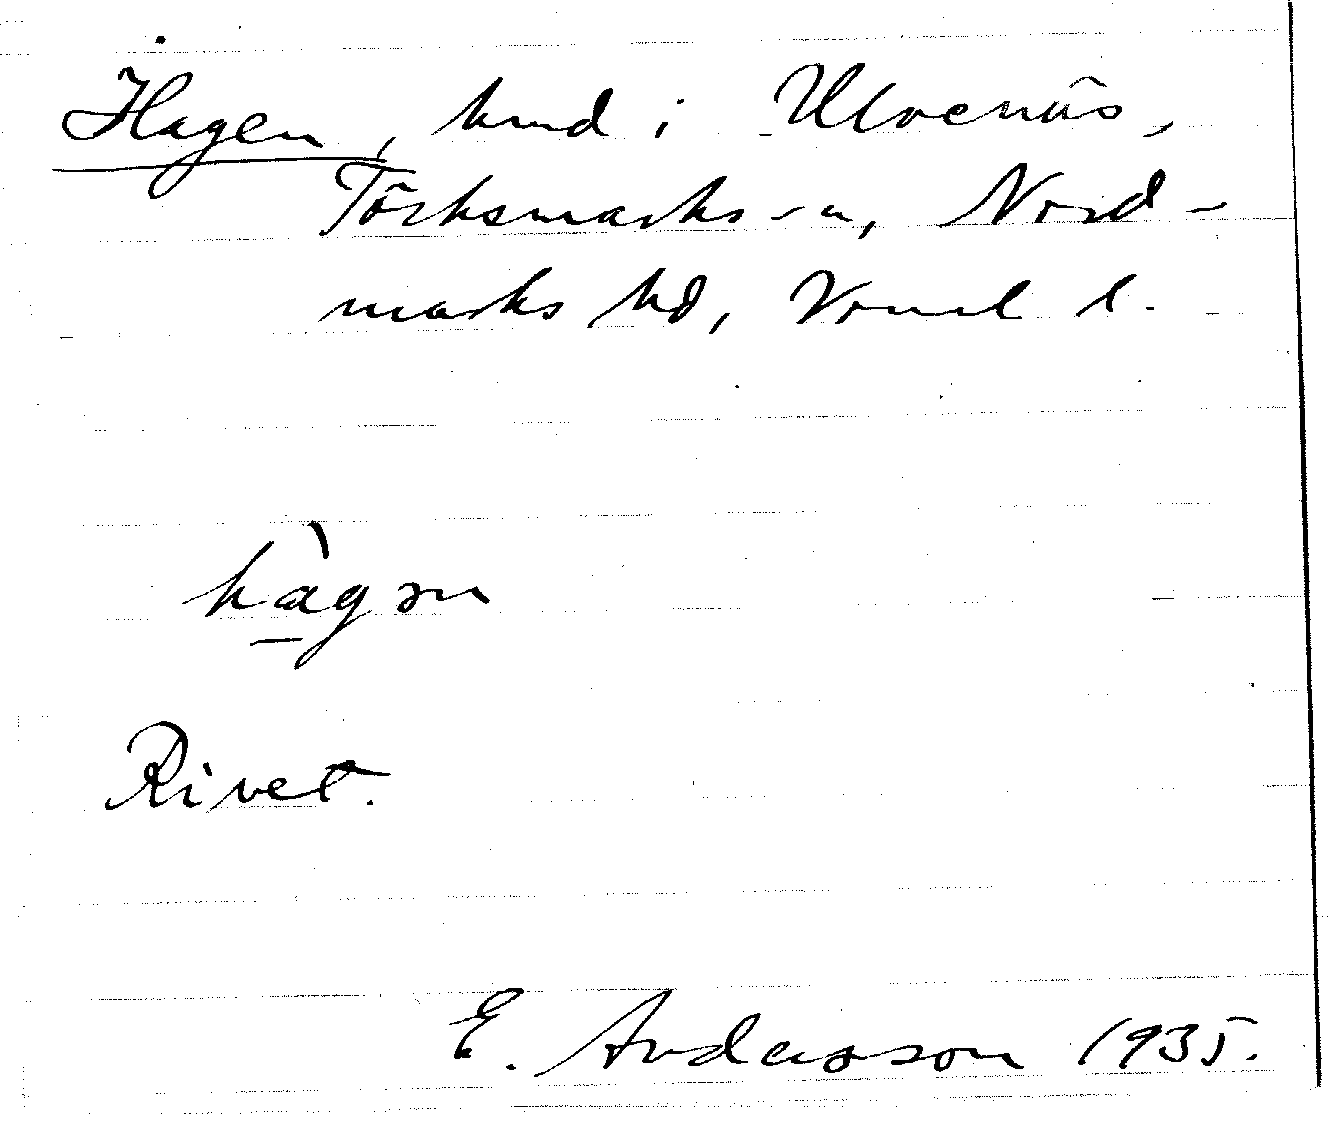 Hagen, hmd i Ulvenäs,
Töcksmarks sn, Nord-
marks hd, Vrml l.
hàgən
Rivet.
E. Andersson 1935.